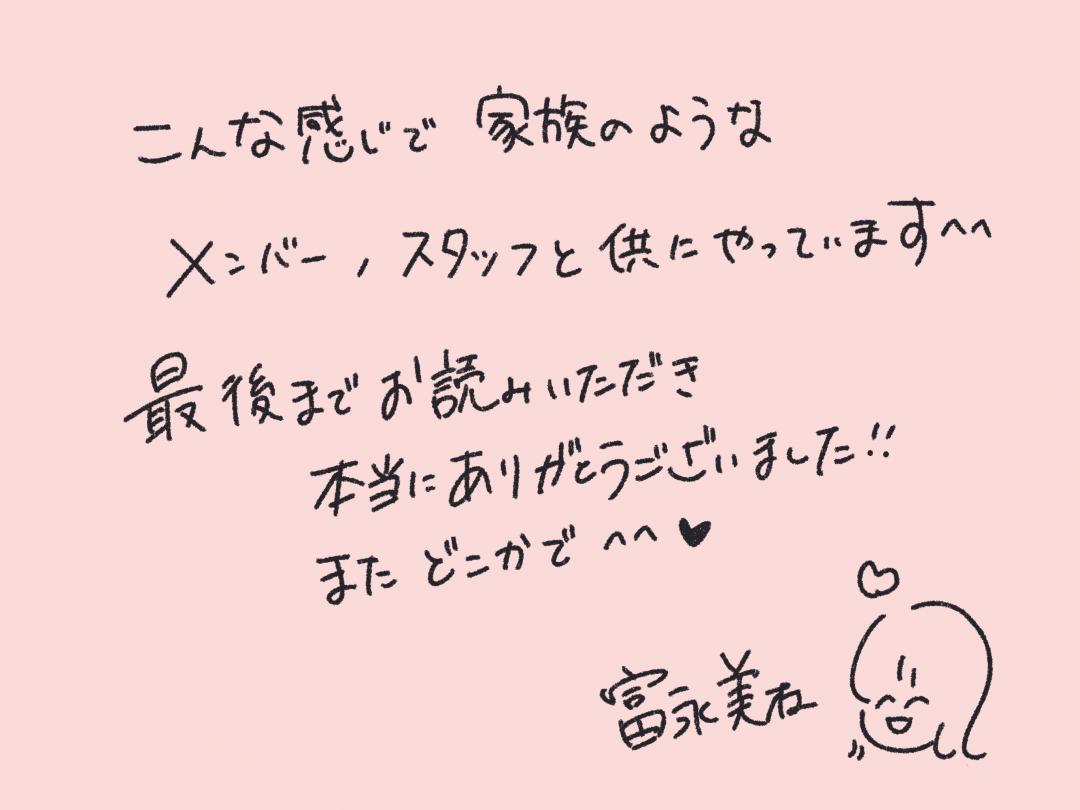 こんな感じで 家族のような
メンバー、スタッフと供にやっています^^
最後までお読みいただき
本当にありがとうございました!!
またどこかで ^^ ♥
富永美ね